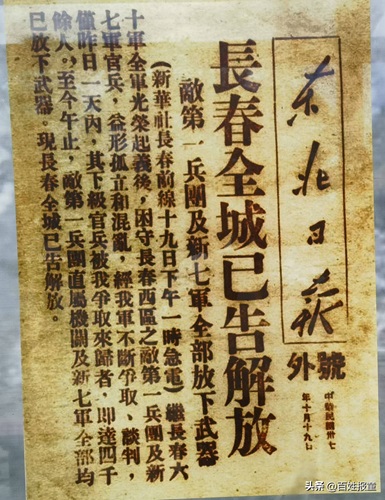 东北日报
號外
中華民國卅七
年十月十九日
長春全城已告解放
敵第一兵團及新七軍全部放下武器
(新華社長春前線十九日下午一時急電)繼長春六
十軍全軍光榮起義後,困守長春西區之敵第一兵團及新
七軍官兵,益形孤立和混亂,經我軍不斷爭取、談判,
僅昨日一天內,其下級官兵被我爭取來歸者,即達四千
餘人。至今午止,敵第一兵團直屬機關及新七軍全部均
已放下武器。現長春全城已告解放。
头条 @百姓报道